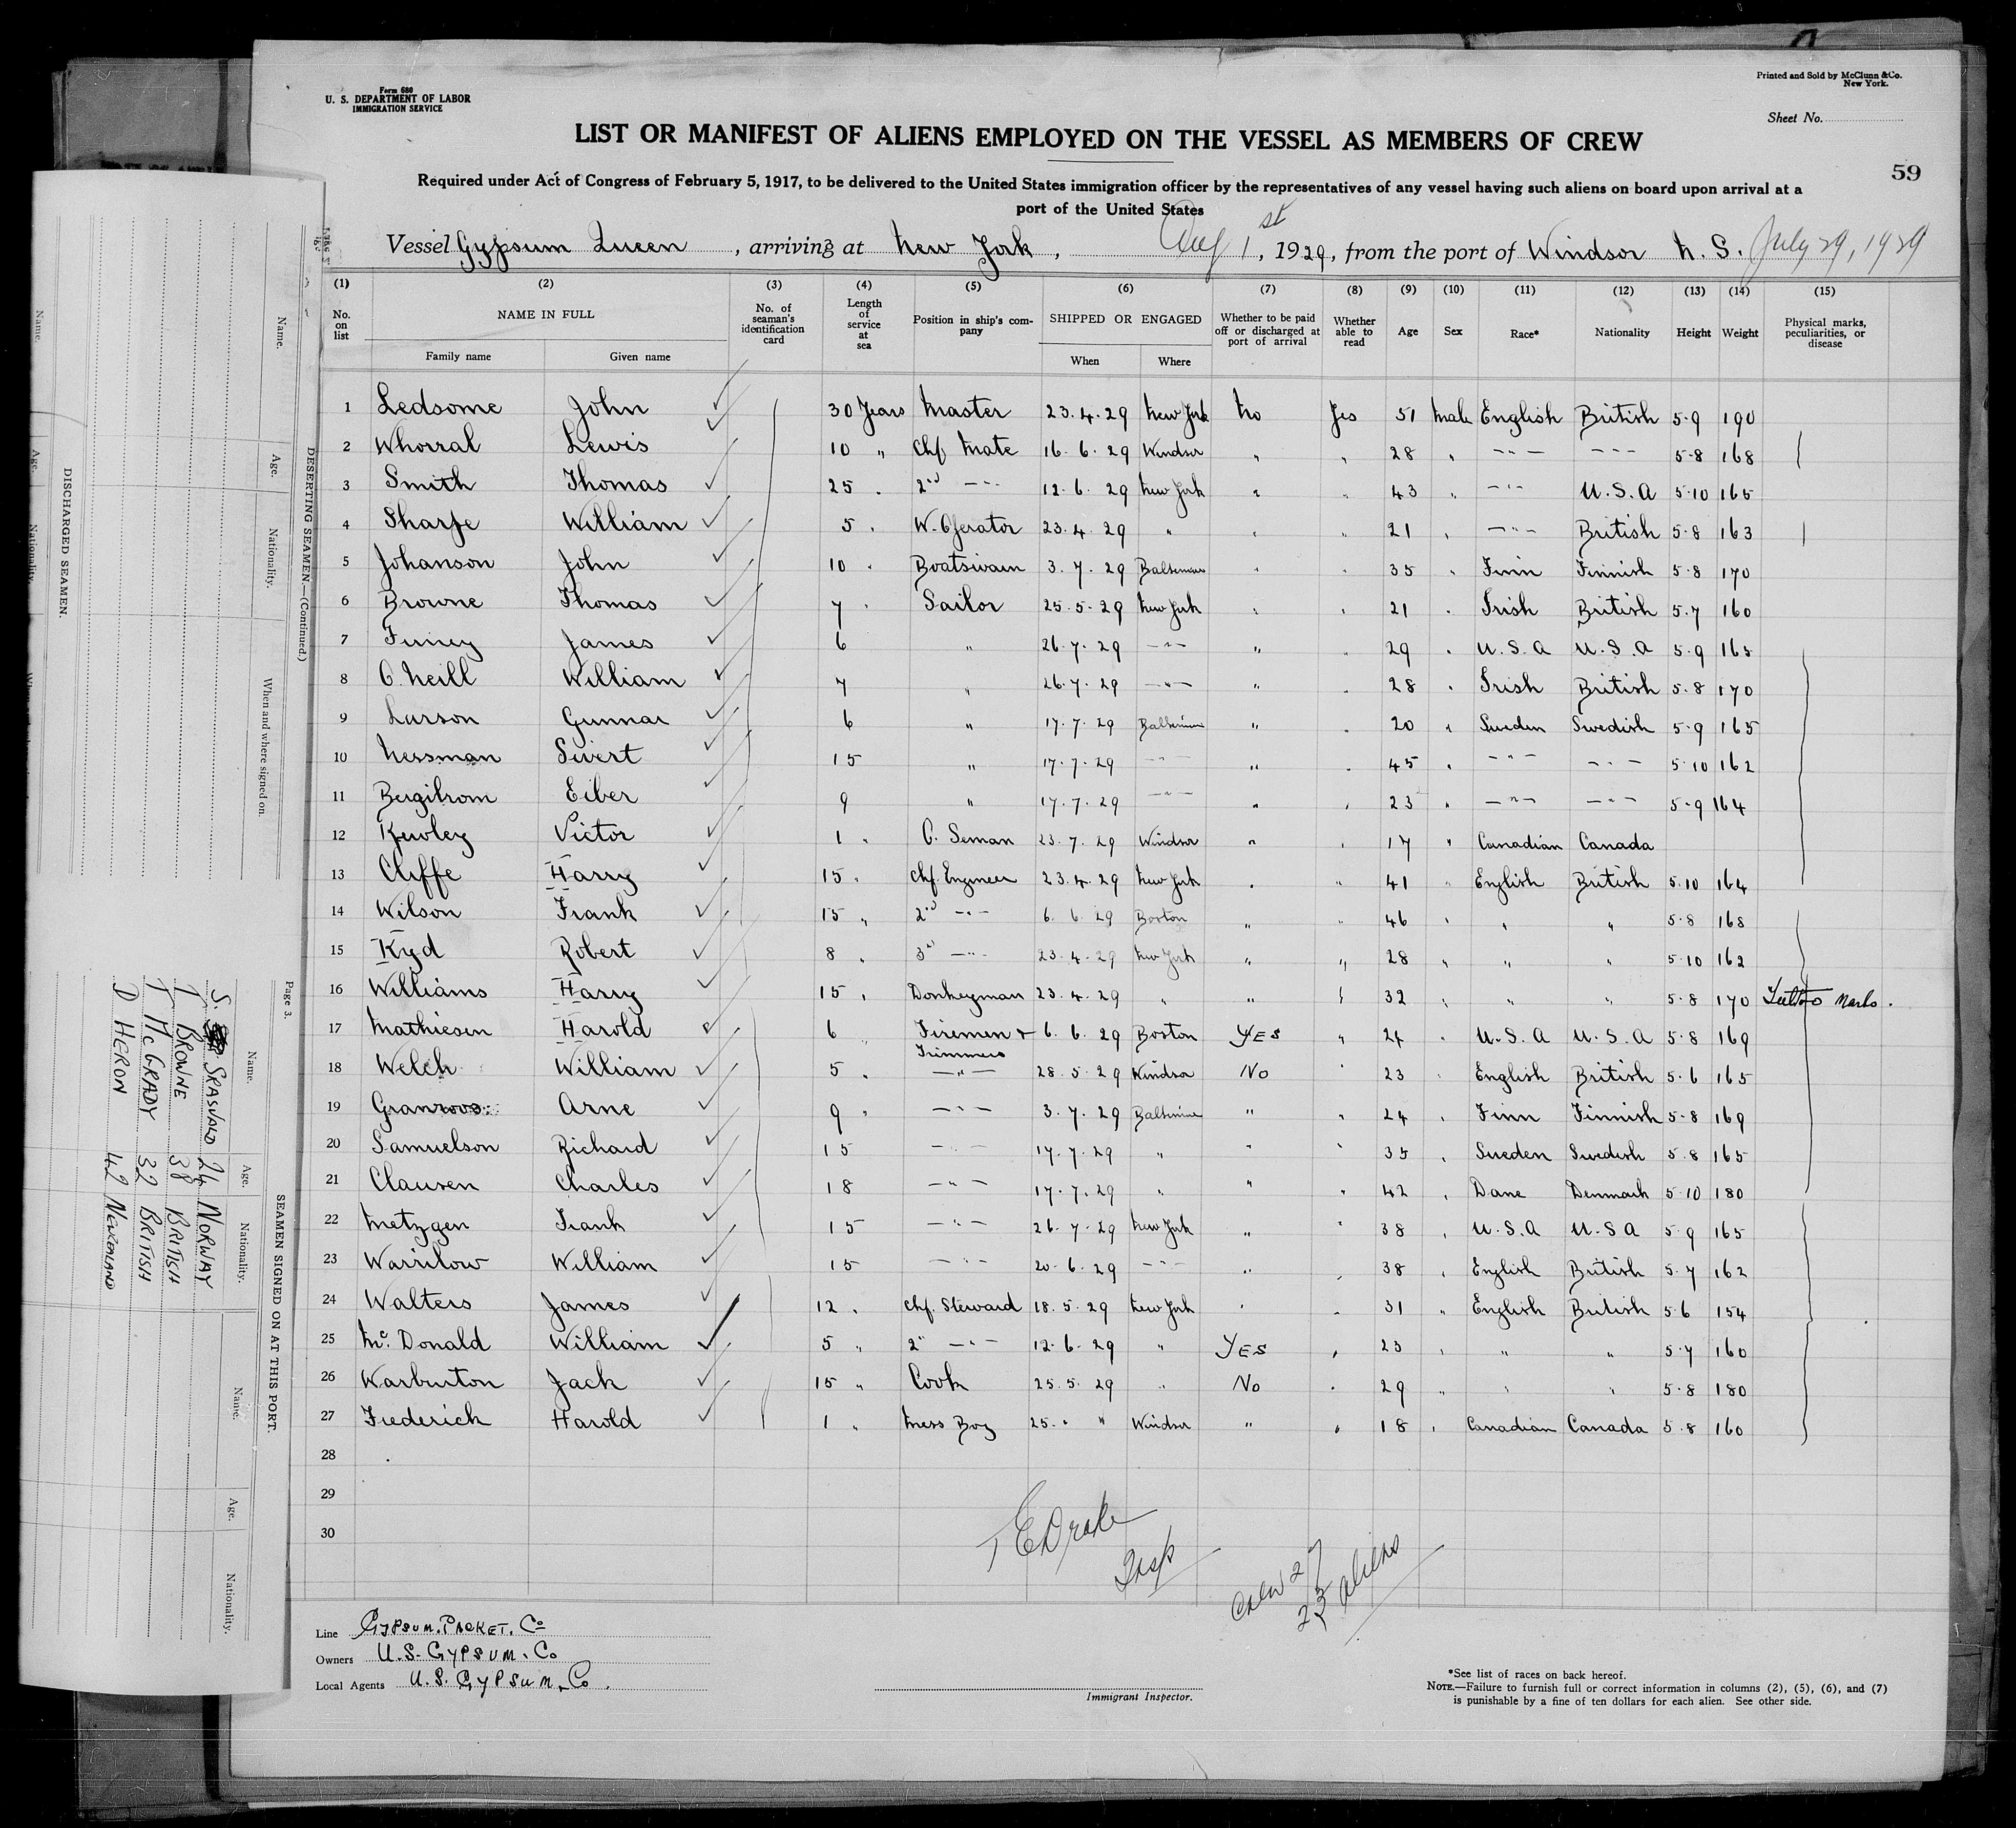 Form 680
U. S. DEPARTMENT OF LABOR
IMMIGRATION SERVICE
Printed and Sold by McClunn & Co.
New York.
Sheet No.
LIST OR MANIFEST OF ALIENS EMPLOYED ON THE VESSEL AS MEMBERS OF CREW
59
Required under Act of Congress of February 5, 1917, to be delivered to the United States immigration officer by the representatives of any vessel having such aliens on board upon arrival at a
port of the United States
Vessel Gypsum Queen, arriving at New York, Aug 1st, 1929, from the port of Windsor N. S. July 29, 1929
(1) (2) (3) (4) (5) (6) (7) (8) (9) (10) (11) (12) (13) (14) (15)
No. on list NAME IN FULL Family name Given name No. of seaman's identification card Length of service at sea Position in ship's company SHIPPED OR ENGAGED When Where Whether to be paid off or discharged at port of arrival Whether able to read Age Sex Race* Nationality Height Weight Physical marks, peculiarities, or disease
1 Ledsome John 30 Years Master 23.4.29 New York No Yes 51 Male English British 5.9 190
2 Whorral Lewis 10 " Chf Mate 16.6.29 Windsor " " 28 " -"- -"- 5.8 168
3 Smith Thomas 25 " 2nd -"- 12.6.29 New York " " 43 " -"- U.S.A 5.10 165
4 Sharpe William 5 " W. Operator 23.4.29 " " " 21 " -"- British 5.8 163
5 Johanson John 10 " Boatswain 3.7.29 Baltimore " " 35 " Finn Finnish 5.8 170
6 Browne Thomas 7 " Sailor 25.5.29 New York " " 21 " Irish British 5.7 160
7 James 6 " 26.7.29 -"- " " 29 " U.S.A U.S.A 5.9 165
8 O.Neill William 7 " 26.7.29 -"- " " 28 " Irish British 5.8 170
9 Larson Gunnar 6 " 17.7.29 Baltimore " " 20 " Sweden Swedish 5.9 165
10 Nessman Sivert 15 " 17.7.29 -"- " " 45 " -"- -"- 5.10 162
11 Eiber 9 " 17.7.29 -"- " " 23 " -"- -"- 5.9 164
12 Victor 1 " O. Seman 23.7.29 Windsor " " 17 " Canadian Canada
13 Cliffe Harry 15 " Chf. Engineer 23.4.29 New York " " 41 " English British 5.10 164
14 Wilson Frank 15 " 2nd -"- 6.6.29 Boston " " 46 " " " 5.8 168
15 Kyd Robert 8 " 3rd -"- 23.4.29 New York " " 28 " " " 5.10 162
16 Williams Harry 15 " Donkeyman 23.4.29 " " " 32 " " " 5.8 170 Marks.
17 Mathiesen Harold 6 " Firemen & Trimmers 6.6.29 Boston YES " 24 " U.S.A U.S.A 5.8 169
18 Welch William 5 " -"- 28.5.29 Windsor No " 23 " English British 5.6 165
19 Arne 9 " -"- 3.7.29 Baltimore " " 24 " Finn Finnish 5.8 169
20 Samuelson Richard 15 -"- 17.7.29 " " " 35 " Sweden Swedish 5.8 165
21 Clausen Charles 18 -"- 17.7.29 " " " 42 " Dane Denmark 5.10 180
22 Metzgen Frank 15 -"- 26.7.29 New York " " 38 " U.S.A U.S.A 5.9 165
23 Warrilow William 15 -"- 20.6.29 -"- " " 38 " English British 5.7 162
24 Walters James 12 " Chf. Steward 18.5.29 New York " " 31 " English British 5.6 154
25 Mc. Donald William 5 " 2" -"- 12.6.29 " YES " 23 " " " 5.7 160
26 Warburton Jack 15 " Cook 25.5.29 " No " 29 " " " 5.8 180
27 Frederick Harold 1 " Mess Boy 25. " " Windsor " " 18 " Canadian Canada 5.8 160
28
29
30
E Drake
Insp
Crew 27
23 aliens
Line GYPSUM. PACKET. Co
Owners U.S. GYPSUM. Co
Local Agents U.S. GYPSUM. Co.
Immigrant Inspector.
*See list of races on back hereof.
NOTE.—Failure to furnish full or correct information in columns (2), (5), (6), and (7)
is punishable by a fine of ten dollars for each alien. See other side.
DESERTING SEAMEN—(Continued.)
Name. Age. Nationality. When and where signed on.
DISCHARGED SEAMEN.
Name. Age. Nationality.
Page 3.
SEAMEN SIGNED ON AT THIS PORT.
Name. Age. Nationality. Name. Age. Nationality.
S. SRASVALD 24 NORWAY
T BROWNE 38 BRITISH
T McGRADY 32 BRITISH
D HERON 42